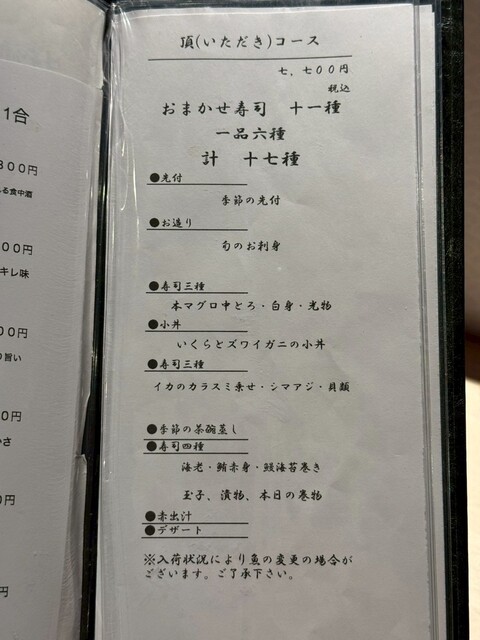 1合
800円
る食中酒
00円
キレ味
00円
旨い
0円
さ
0円
円
頂(いただき)コース
七,七00円
税込
おまかせ寿司 十一種
一品六種
計 十七種
●先付
季節の先付
●お造り
旬のお刺身
●寿司三種
本マグロ中とろ・白身・光物
●小丼
いくらとズワイガニの小丼
●寿司三種
イカのカラスミ乗せ・シマアジ・貝類
●季節の茶碗蒸し
●寿司四種
海老・鮪赤身・鰻海苔巻き
玉子、漬物、本日の巻物
●赤出汁
●デザート
※入荷状況により魚の変更の場合が
ございます。ご了承下さい。